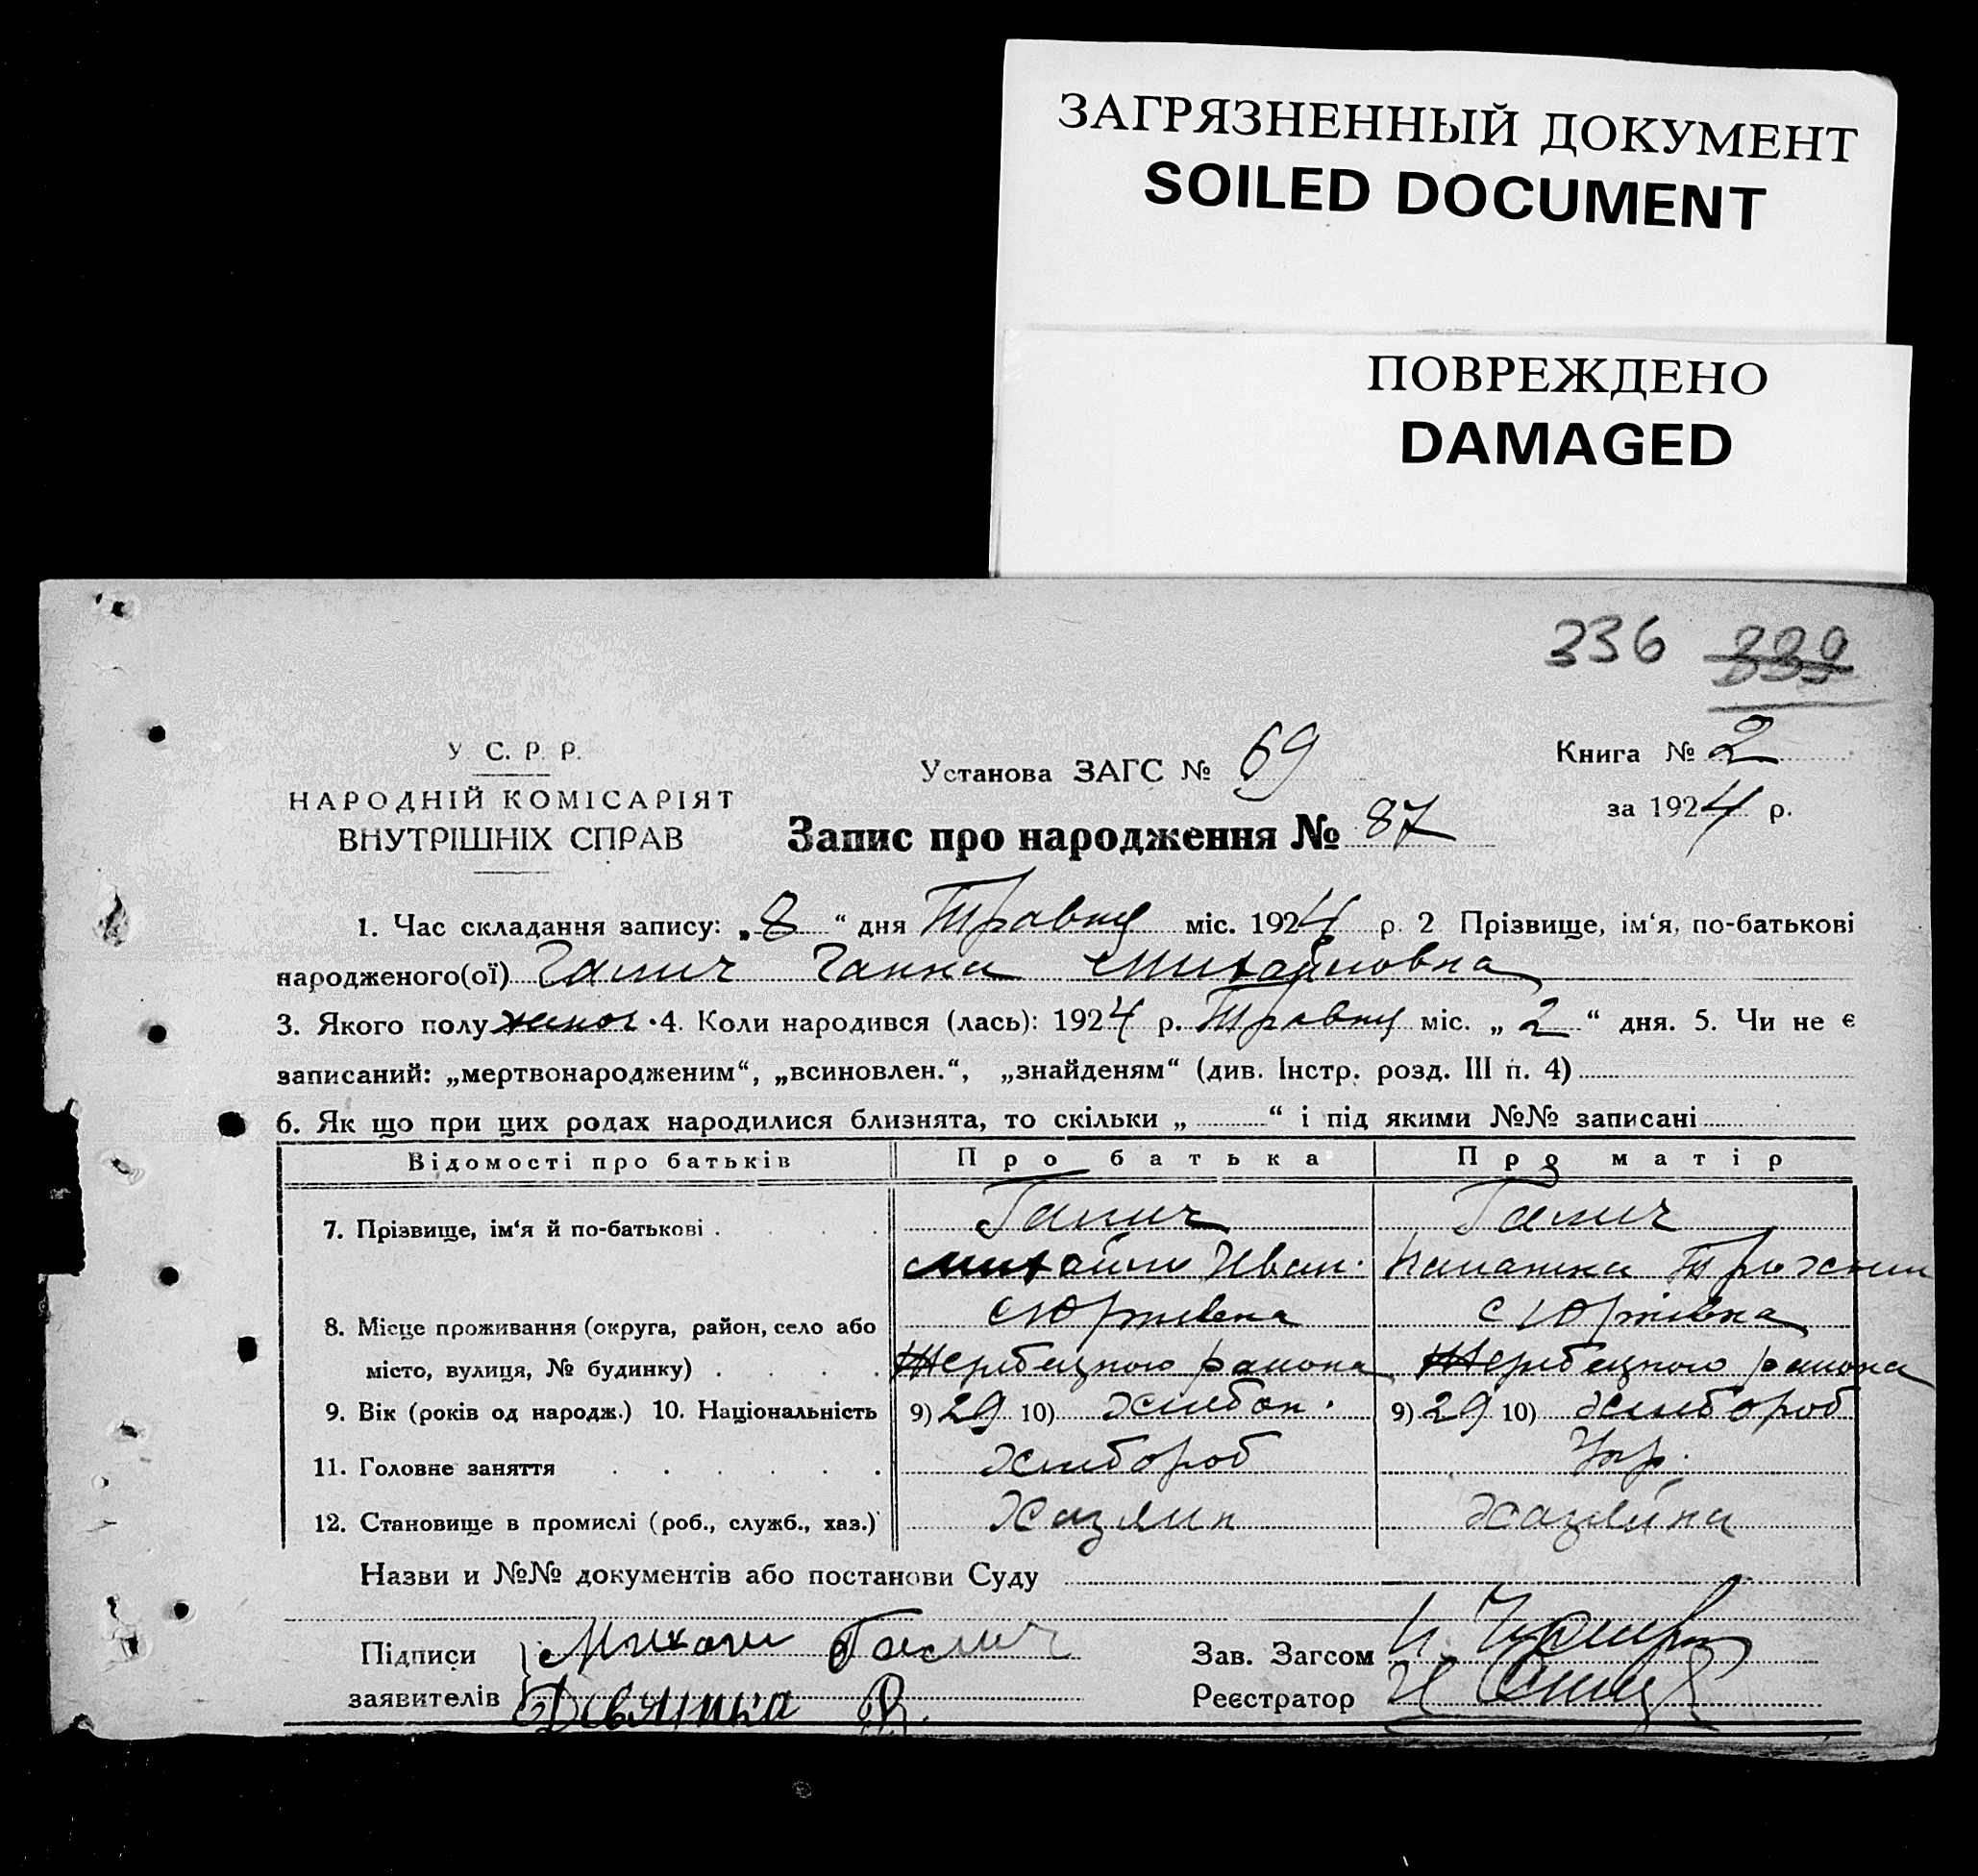 ЗАГРЯЗНЕННЫЙ ДОКУМЕНТ
SOILED DOCUMENT
ПОВРЕЖДЕНО
DAMAGED
336 339
У С. Р. Р.
НАРОДНІЙ КОМІСАРІЯТ
ВНУТРІШНІХ СПРАВ
Установа ЗАГС № 69
Книга № 2
за 1924 р.
Запис про народження № 87
1. Час складання запису: „8“ дня Травня міс. 1924 р. 2 Прізвище, ім‘я, по-батькові
народженого(ої) Галич Ганна Михайловна
3. Якого полу жіноч. 4. Коли народився (лась): 1924 р. Травня міс. „2“ дня. 5. Чи не є
записаний: „мертвонародженим“, „всиновлен.“, „знайденям“ (див. Інстр. розд. III п. 4)
6. Як що при цих родах народилися близнята, то скільки „ “ і під якими №№ записані
Відомості про батьків Про батька Про матір
7. Прізвище, ім‘я й по-батькові Галич Галич
Михайло Иван.
8. Місце проживання (округа, район, село або с Юрківка с Юрківка
місто, вулиця, № будинку) Жеребецкого района Жеребецкого района
9. Вік (років од народж.) 10. Національність 9) 29 10) 9) 29 10) хлібороб
11. Головне заняття хлібороб Укр.
12. Становище в промислі (роб., служб., хаз.) Хазяин хазяйка
Назви и №№ документів або постанови Суду
Підписи Михаил Галич Зав. Загсом
заявителів Реєстратор